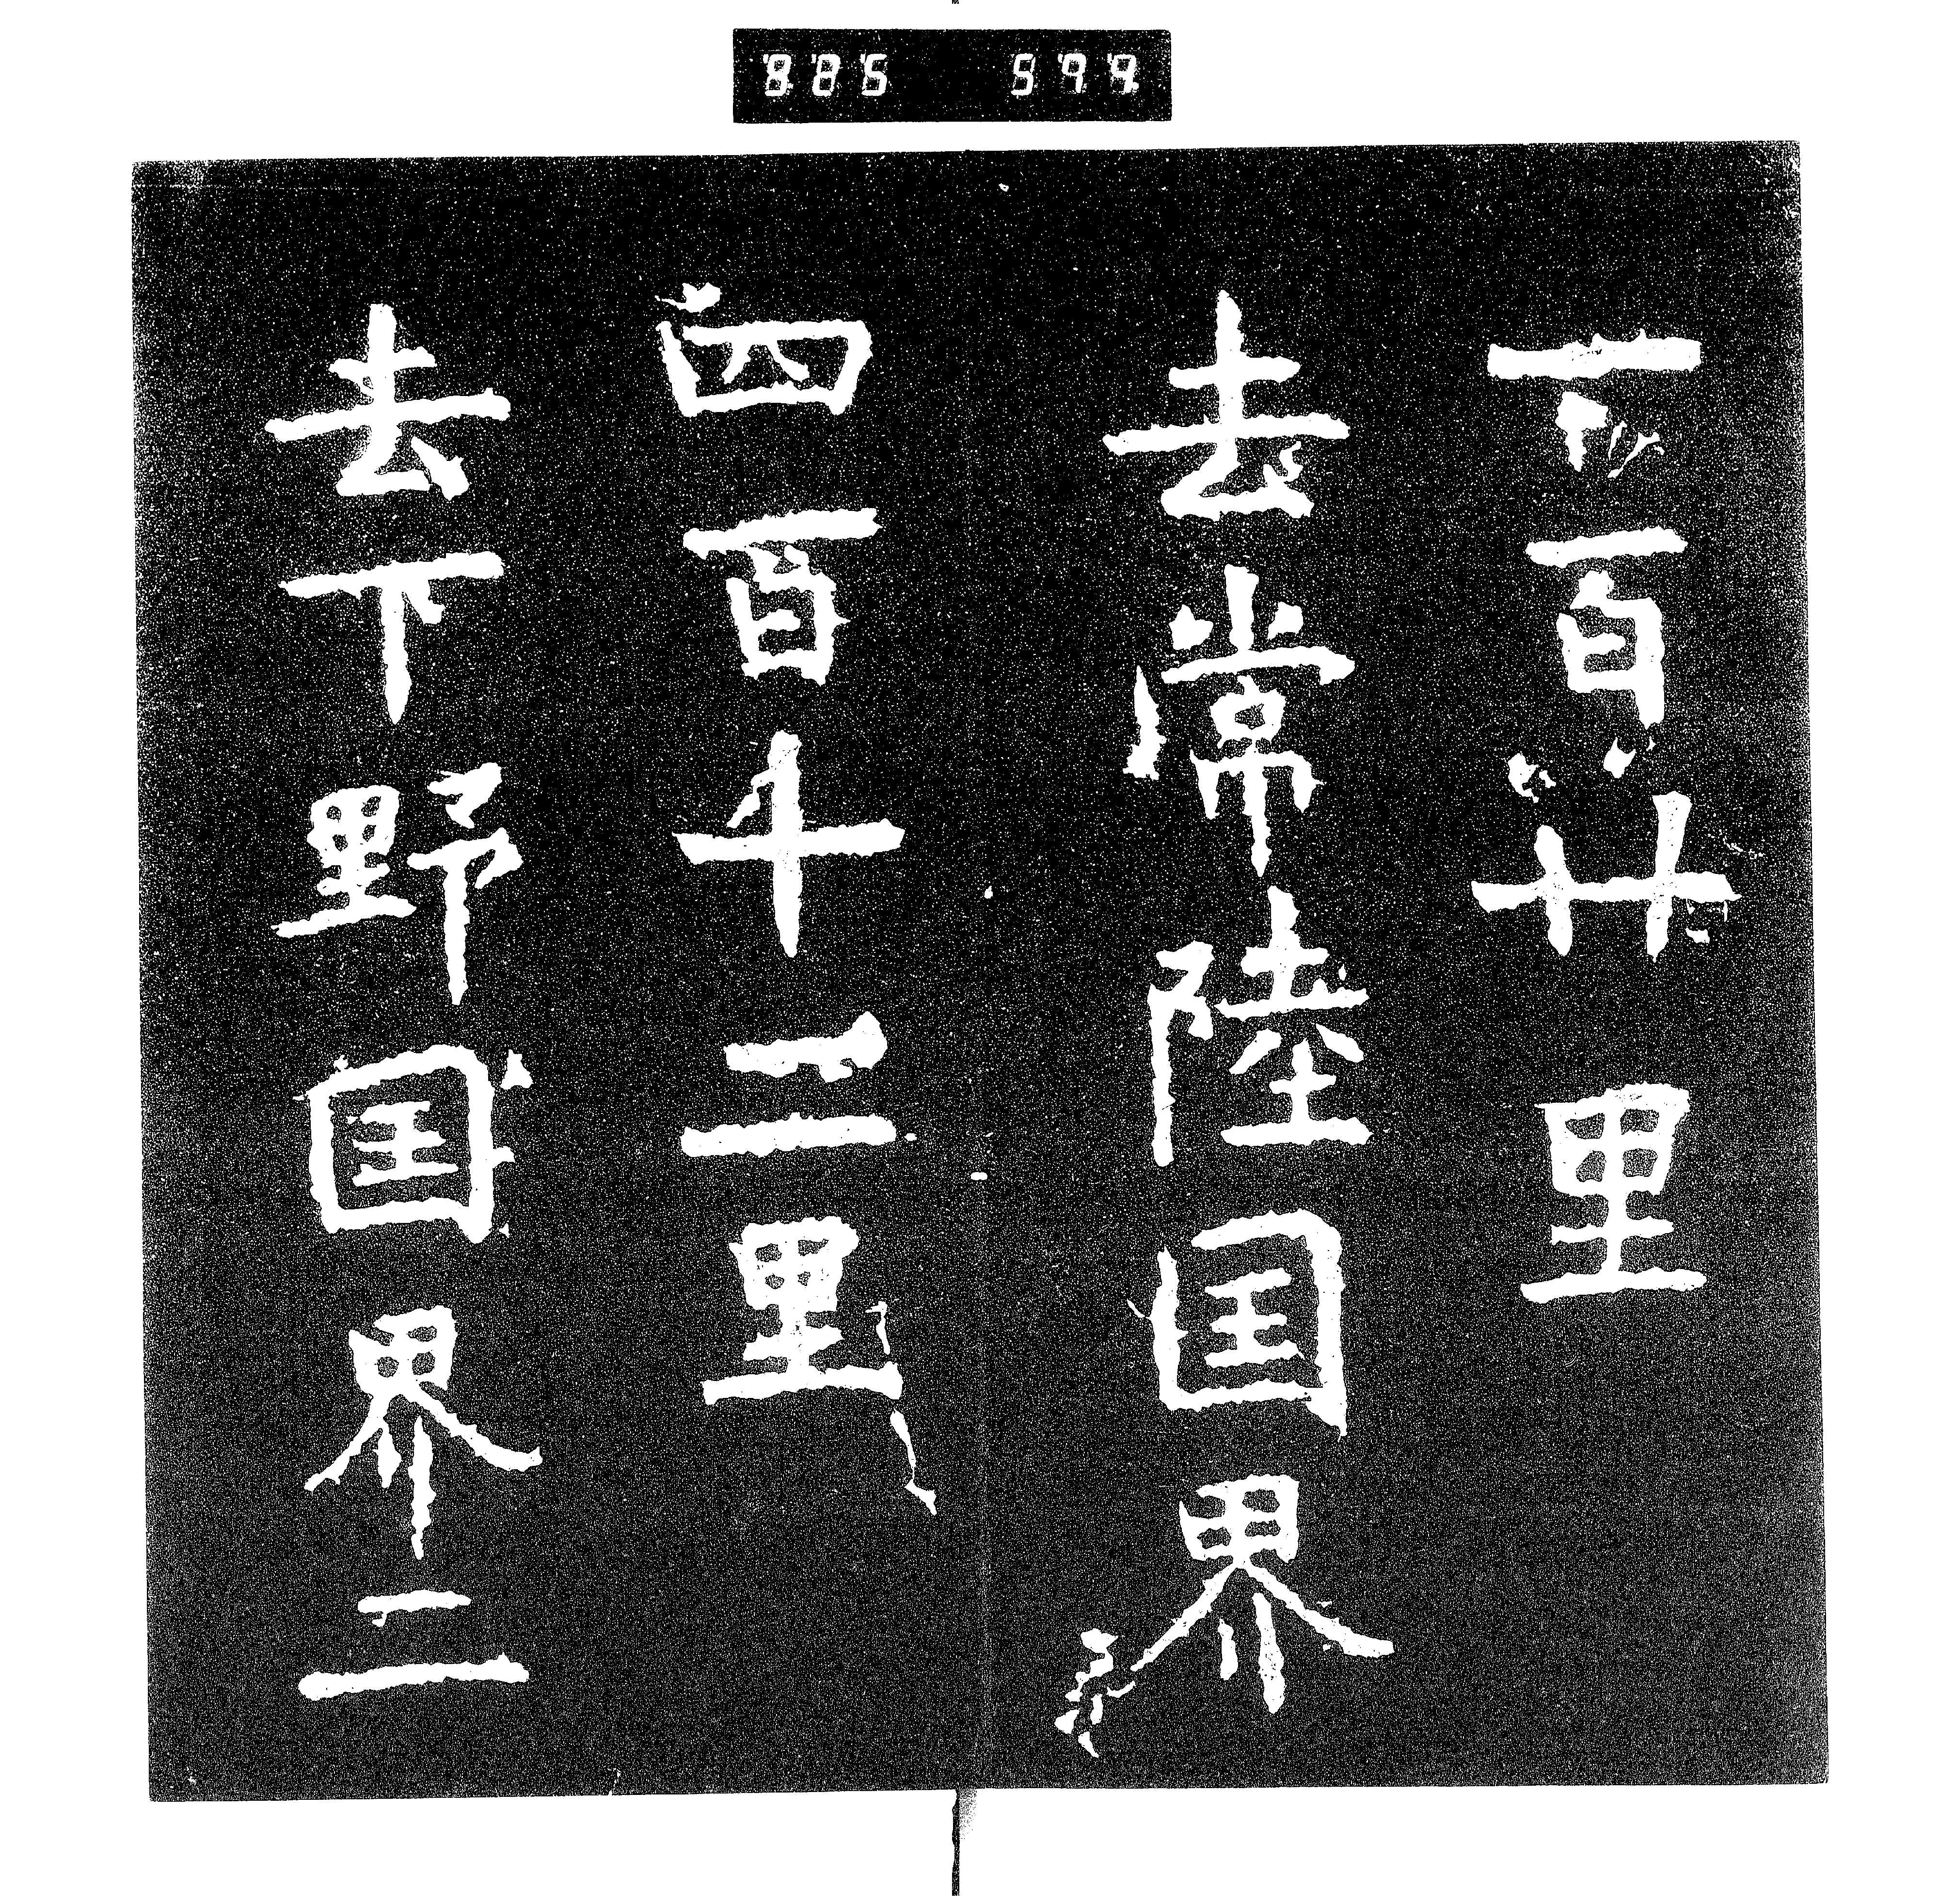 一百廿里
去常陸国界
四百十二里
去下野国界二